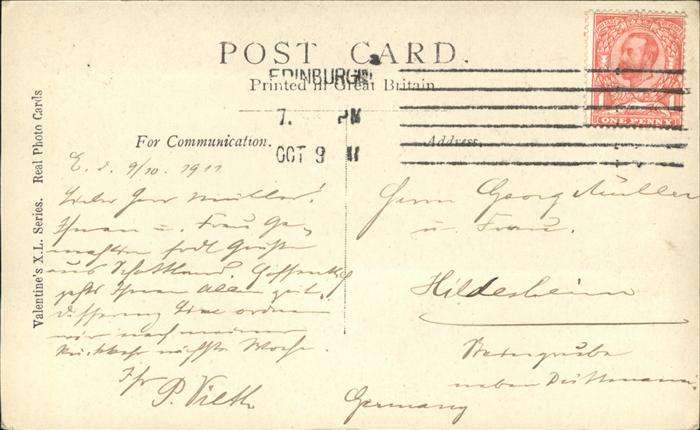 POST CARD.
Printed in Great Britain
EDINBURGH
7. PM
OCT 9 11
ONE PENNY
Valentine's X.L. Series. Real Photo Cards
For Communication.
Address.
E. d. 9/10. 1911
Lieber Herr Müller!
Ihnen u. Frau Ge-
mahlin herzl Grüße
aus Schottland. Hoffentlich
geht's Ihnen allen gut.
ordnen
wir nach meiner
Rückkehr nächste Woche.
Ihr
P. Vieth
Herrn Georg Müller
u. Frau.
Hildesheim
neben
Germany